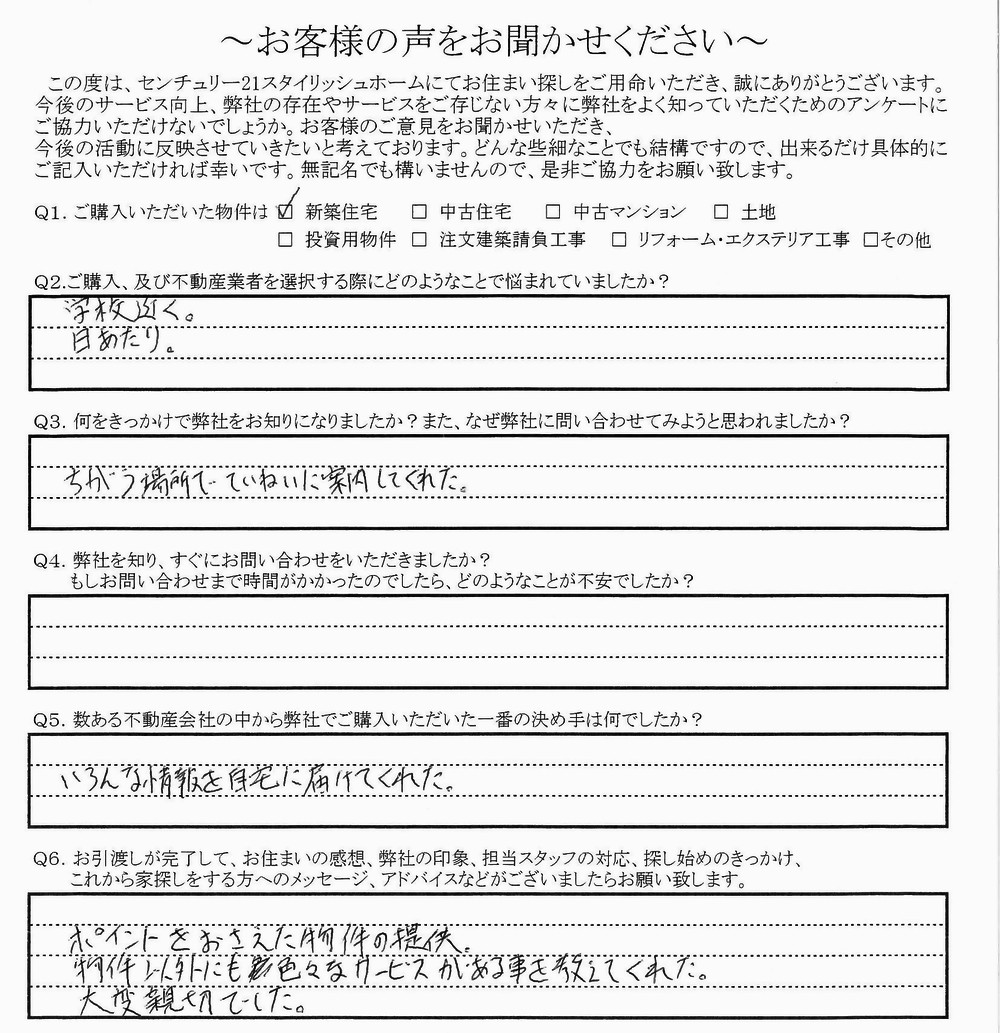 ～お客様の声をお聞かせください～
この度は、センチュリー21スタイリッシュホームにてお住まい探しをご用命いただき、誠にありがとうございます。
今後のサービス向上、弊社の存在やサービスをご存じない方々に弊社をよく知っていただくためのアンケートに
ご協力いただけないでしょうか。お客様のご意見をお聞かせいただき、
今後の活動に反映させていきたいと考えております。どんな些細なことでも結構ですので、出来るだけ具体的に
ご記入いただければ幸いです。無記名でも構いませんので、是非ご協力をお願い致します。
Q1. ご購入いただいた物件は ☑ 新築住宅 □ 中古住宅 □ 中古マンション □ 土地
□ 投資用物件 □ 注文建築請負工事 □ リフォーム・エクステリア工事 □その他
Q2.ご購入、及び不動産業者を選択する際にどのようなことで悩まれていましたか？
学校近く。
日あたり。
Q3. 何をきっかけで弊社をお知りになりましたか？また、なぜ弊社に問い合わせてみようと思われましたか？
ちがう場所で ていねいに案内してくれた。
Q4. 弊社を知り、すぐにお問い合わせをいただきましたか？
もしお問い合わせまで時間がかかったのでしたら、どのようなことが不安でしたか？
Q5. 数ある不動産会社の中から弊社でご購入いただいた一番の決め手は何でしたか？
いろんな情報を自宅に届けてくれた。
Q6. お引渡しが完了して、お住まいの感想、弊社の印象、担当スタッフの対応、探し始めのきっかけ、
これから家探しをする方へのメッセージ、アドバイスなどがございましたらお願い致します。
ポイントをおさえた物件の提供。
物件以外にも色々なサービスがある事を教えてくれた。
大変親切でした。